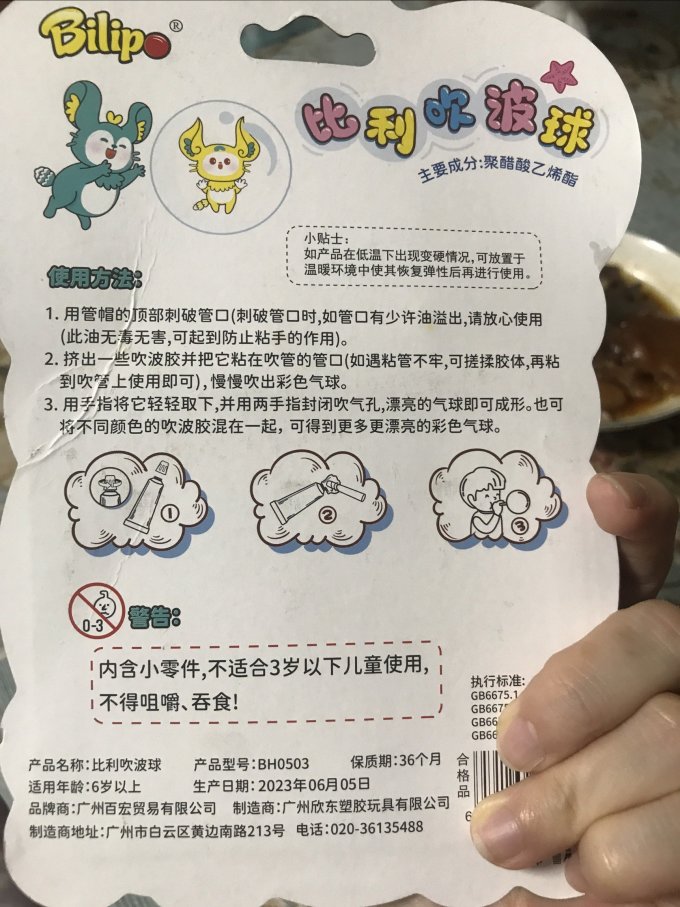 Bilipo®
比利吹波球
主要成分:聚醋酸乙烯酯
小贴士:
如产品在低温下出现变硬情况,可放置于
温暖环境中使其恢复弹性后再进行使用。
使用方法:
1. 用管帽的顶部刺破管口(刺破管口时,如管口有少许油溢出,请放心使用
(此油无毒无害,可起到防止粘手的作用)。
2. 挤出一些吹波胶并把它粘在吹管的管口(如遇粘管不牢,可搓揉胶体,再粘
到吹管上使用即可),慢慢吹出彩色气球。
3. 用手指将它轻轻取下,并用两手指封闭吹气孔,漂亮的气球即可成形。也可
将不同颜色的吹波胶混在一起,可得到更多更漂亮的彩色气球。
① ② ③
0-3
警告:
内含小零件,不适合3岁以下儿童使用,
不得咀嚼、吞食!
执行标准:
GB6675.1
GB667
GB66
GB66
产品名称:比利吹波球 产品型号:BH0503 保质期:36个月
适用年龄:6岁以上 生产日期:2023年06月05日
品牌商:广州百宏贸易有限公司 制造商:广州欣东塑胶玩具有限公司
制造商地址:广州市白云区黄边南路213号 电话:020-36135488
合格品
6